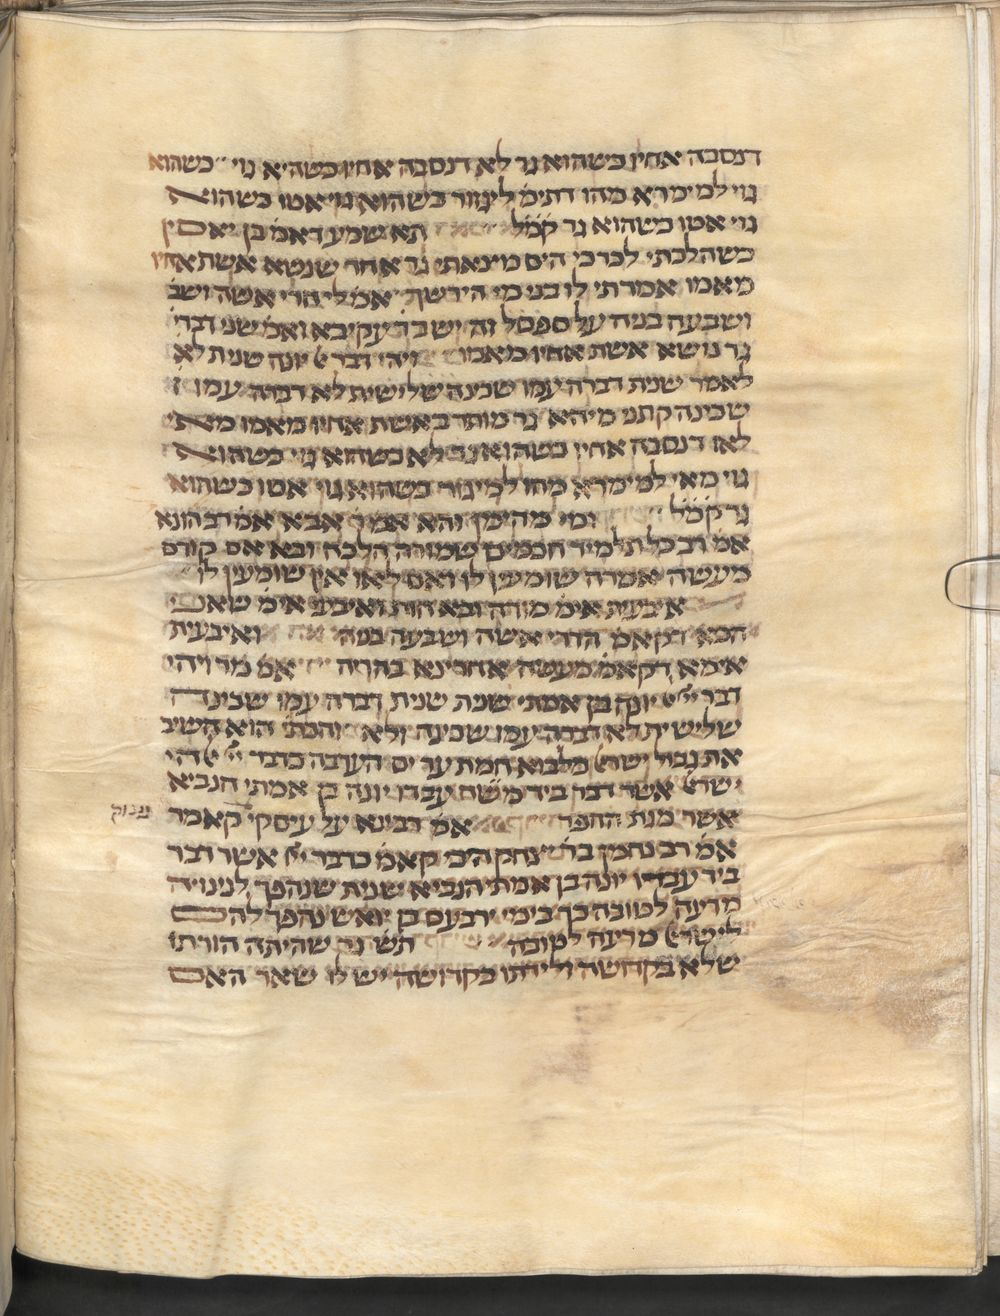 דנסבה אחיו כשהוא גר לא דנסבה אחיו כשהיא גוי כשהוא
גוי למימרא מהו דתימ׳ ליגזור כשהוא גוי אטו כשהוא
גוי אטו כשהוא גר קמ״ל תא שמע דאמ׳ בן יאסין
כשהלכתי לכרכי הים מצאתי גר אחד שנשא אשת אחיו
מאמו אמרתי לו בני מי הירשך אמ׳ לי הרי אשה ושב׳
ושבעה בניה על ספסל זה ישב ר׳ עקיבא ואמ׳ שני דברי׳
גר נושא אשת אחיו מאמו ויהי דבר יי׳ אל יונה שנית לא
לאמר שנית דברה עמו שכינה שלישית לא דברה עמו
שכינה קתני מיהא גר מותר באשת אחיו מאמו מאי
לאו דנסבה אחיו כשהוא גר לא כשהוא גוי כשהוא
גוי מאי למימרא מהו למיגזר כשהוא גוי אטו כשהוא
גר קמ״ל ומי מהימן והא אמ׳ ר׳ אבא אמ׳ רב הונא
אמ׳ רב כל תלמיד חכמים שמורה הלכה ובא אם קודם
מעשה אמרה שומעין לו ואם לאו אין שומעין לו
איבעית אימ׳ מורה ובא הוה ואיבע׳ אימ׳ שאני
הכא דקאמ׳ הרי אשה ושבעה בניה ואיבעית
אימא דקאמ׳ מעשה אחרינא בהדיה אמ׳ מר ויהי
דבר יי׳ אל יונה בן אמתי שנית שנית דברה עמו שכינה
שלישית לא דברה עמו שכינה ולא והכת׳ הוא השיב
את גבול ישר׳ מלבוא חמת עד ים הערבה כדבר יי׳ אלהי
ישר׳ אשר דבר ביד עבדו יונה בן אמתי הנביא
אשר מגת החפר אמ׳ רבינא על עיסקי קאמר
אמ׳ רב נחמן בר יצחק הכי קאמ׳ כדבר יי׳ אשר דבר
ביד עבדו יונה בן אמתי הנביא שנית שנהפך לנינוה
מרעה לטובה כך בימי ירבעם בן יואש נהפך להם
לישר׳ מרעה לטובה תש׳ גר שהיתה הורתו
שלא בקדושה ולידתו בקדושה יש לו שאר האם